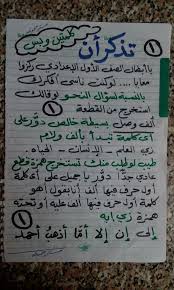 كلمتين وبس
١ تذكر أن
يا أبطال الصف الأول الإعدادى ركزوا
معايا .... لو كنت ناسى أفكرك
بالنسبة لسؤال النحو لو قالك
استخرج من القطعة ؟
ألف وصل بسيطة خالص دوّر على
أى كلمة تبدأ بألف ولام
زى العلم - الإنسان - الحياة .
طيب لو طلب منك تستخرج همزة قطع
عادى جدًا دوّر يا جميل على أى كلمة
أول حرف فيها ألف أو بقول أهو
كلمة أول حرف فيها ألف عليه أو تحته
همزة زى إيه ١
إلى إن إلا أمّا أذهبُ أحمد